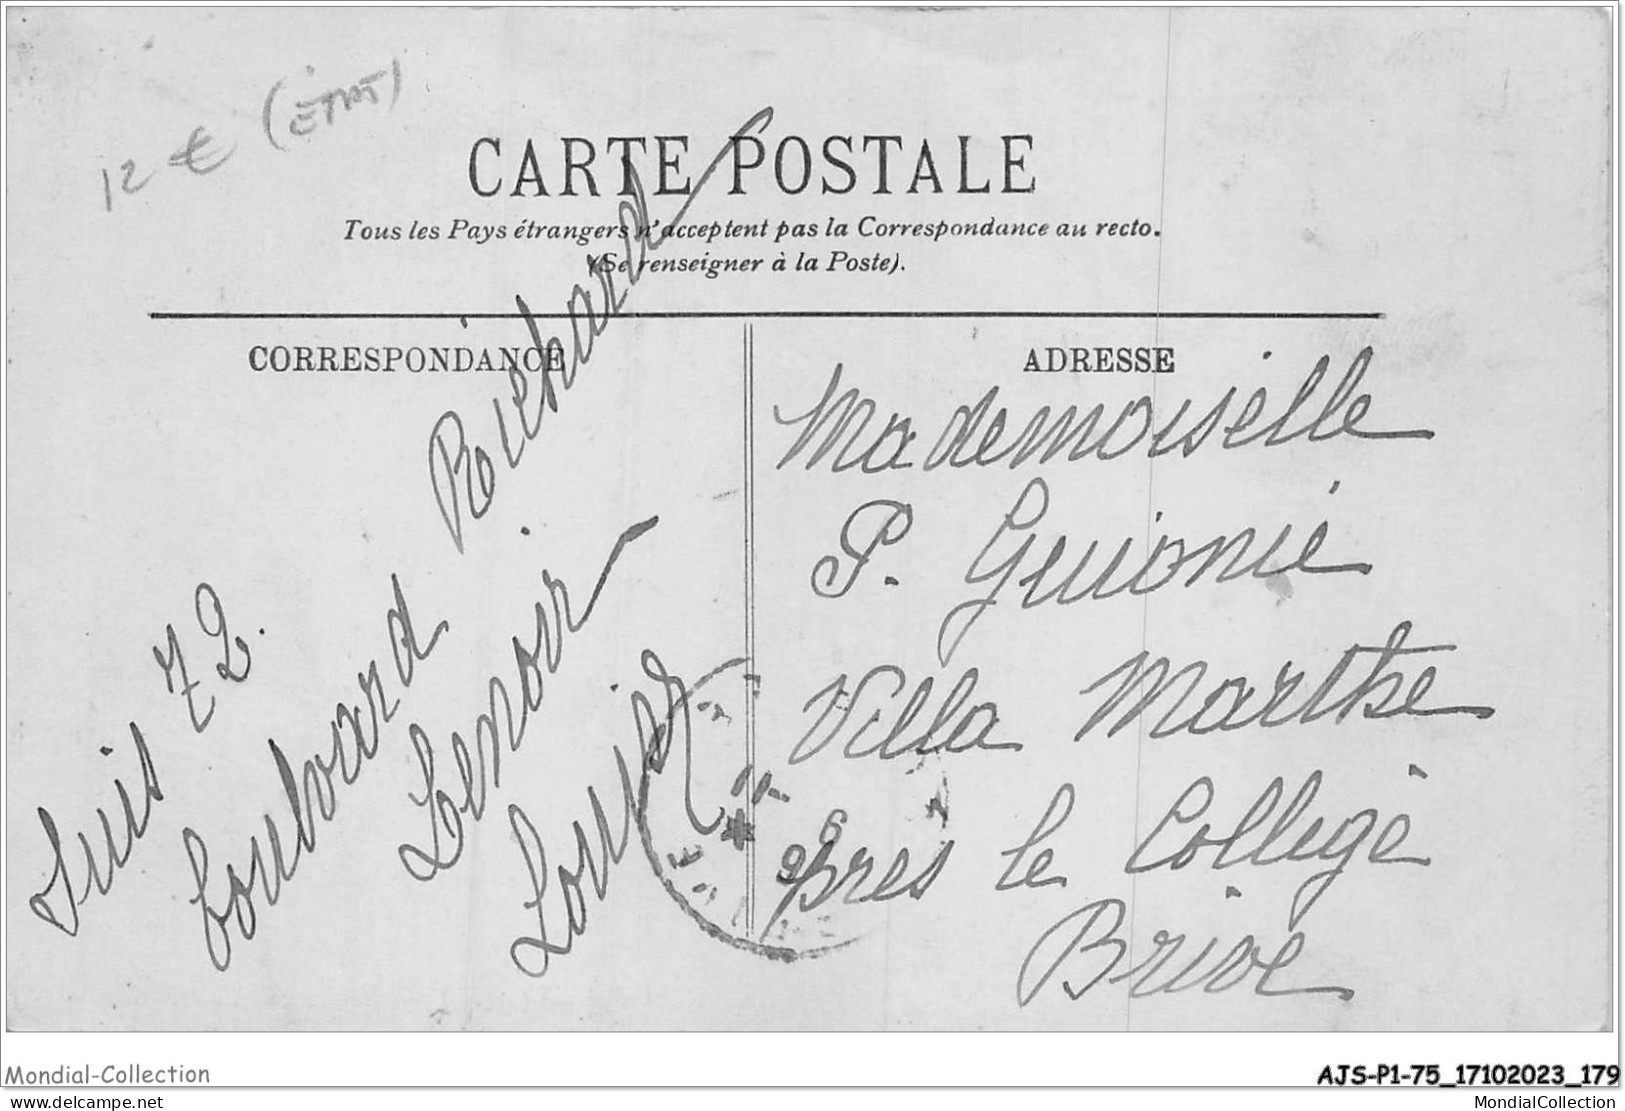 12 € (ÉTAT)
CARTE POSTALE
Tous les Pays étrangers n'acceptent pas la Correspondance au recto.
(Se renseigner à la Poste).
CORRESPONDANCE
Suis 72.
boulvard Richard
Lenoir
Louise
ADRESSE
Mademoiselle
P. Guionie
Villa Marthe
près le College
Brive
Mondial-Collection
AJS-P1-75_17102023_179
delcampe.net
MondialCollection